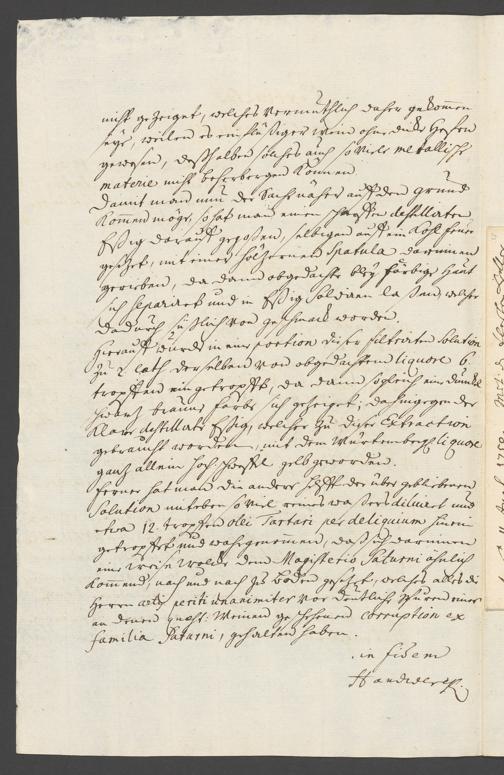 nicht gezeiget, welches vermuthlich daher gekommen
seye, weilen es ein flüßiger Wein ohne dicke Heefen
gewesen, deßhalben solches auch so viele metallische
materie nicht beherbergen können.
Damit man nun der Sache näher auf den Grund
kommen möge, so hat man einen destillirten
Eßig darauf gegoßen, selbigen auf ein Kohlfeuer
gesetzt, mit einer höltzernen Spatula darinnen
gerieben, da dann obgedachte Bley färbige Haut
sich separiret und in Eßig solviren laßen, welcher
dadurch süßlich von geschmack worden.
Hierauf wurde in eine portion dieser filtrirten Solution
zu 2 Loth derselben von obgedachtem liquore 6.
tropffen eingetropfft, da dann sogleich eine dunckel
schwartz braune farbe sich gezeiget; dahingegen der
klare destillirte Eßig, welcher zu dieser Extraction
gebraucht worden, mit dem Würtembergl. liquore
gantz allein hoch schwefel gelb geworden.
Ferner hat man die andere Helffte der übergebliebenen
Solution mit eben so viel reines waßers diluirt und
etwa 12. tropffen olei Tartari per deliquium hinein
getropfft und wahrgenommen, daß sich darinnen
eine weiße wolcke dem Magisterio Saturni ähnlich
kommend, nach und nach zu Boden gesetzt, welches alles die
Herren periti unanimiter vor deutliche Spuren einer
an denen Weinen geschehenen corruption ex
familia Saturni, gehalten haben.
in fidem
Handwerck.